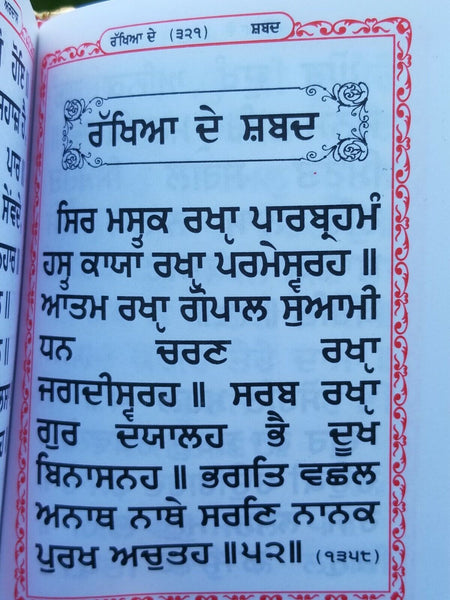 ਰੱਖਿਆ ਦੇ (੩੨੧) ਸ਼ਬਦ
ਰੱਖਿਆ ਦੇ ਸ਼ਬਦ
ਸਿਰ ਮਸ੍ਤਕ ਰਖ੍ਯਾ ਪਾਰਬ੍ਰਹਮੰ
ਹਸ੍ਤ ਕਾਯਾ ਰਖ੍ਯਾ ਪਰਮੇਸ੍ਵਰਹ ॥
ਆਤਮ ਰਖ੍ਯਾ ਗੋੁਪਾਲ ਸੁਆਮੀ
ਧਨ ਚਰਣ ਰਖ੍ਯਾ
ਜਗਦੀਸ੍ਵਰਹ ॥ ਸਰਬ ਰਖ੍ਯਾ
ਗੁਰ ਦਯਾਲਹ ਭੈ ਦੂਖ
ਬਿਨਾਸਨਹ ॥ ਭਗਤਿ ਵਛਲ
ਅਨਾਥ ਨਾਥੇ ਸਰਣਿ ਨਾਨਕ
ਪੁਰਖ ਅਚੁਤਹ ॥੫੨॥ (੧੩੫੮)